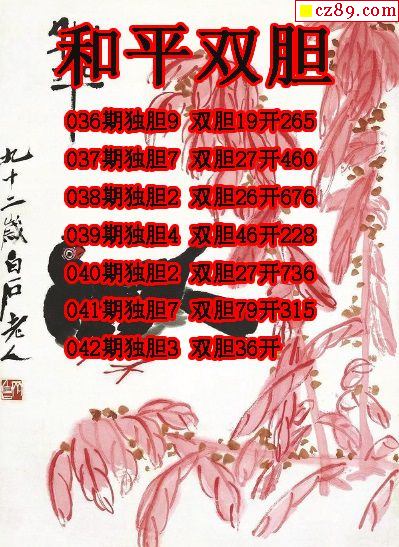 cz89.com
和平双胆
036期独胆9 双胆19开265
037期独胆7 双胆27开460
038期独胆2 双胆26开676
039期独胆4 双胆46开228
040期独胆2 双胆27开736
041期独胆7 双胆79开315
042期独胆3 双胆36开
九十二岁白石老人